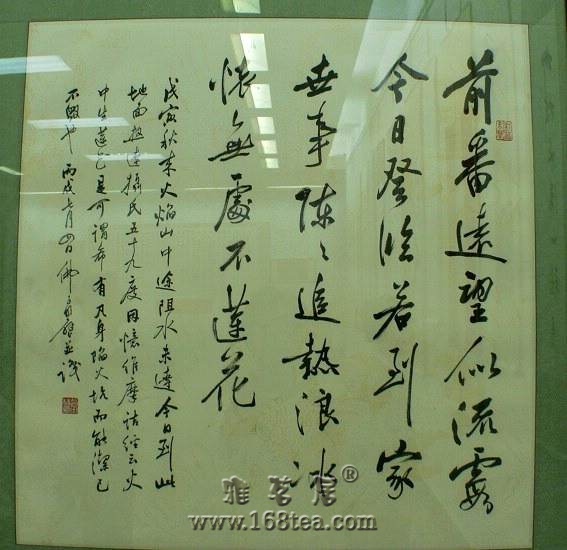 前番遠望似流霞
今日登臨若到家
世事陳々追熱浪冰
懷無處不蓮花
戊寅秋來火焰山中途阻水未達今日到此
地面溫達攝氏五十九度因憶維摩詰經云火
中生蓮花是可謂希有凡身陷火坑而能潔己
不 丙戌七月四日佛 并識
雅茗居®
www.168tea.com